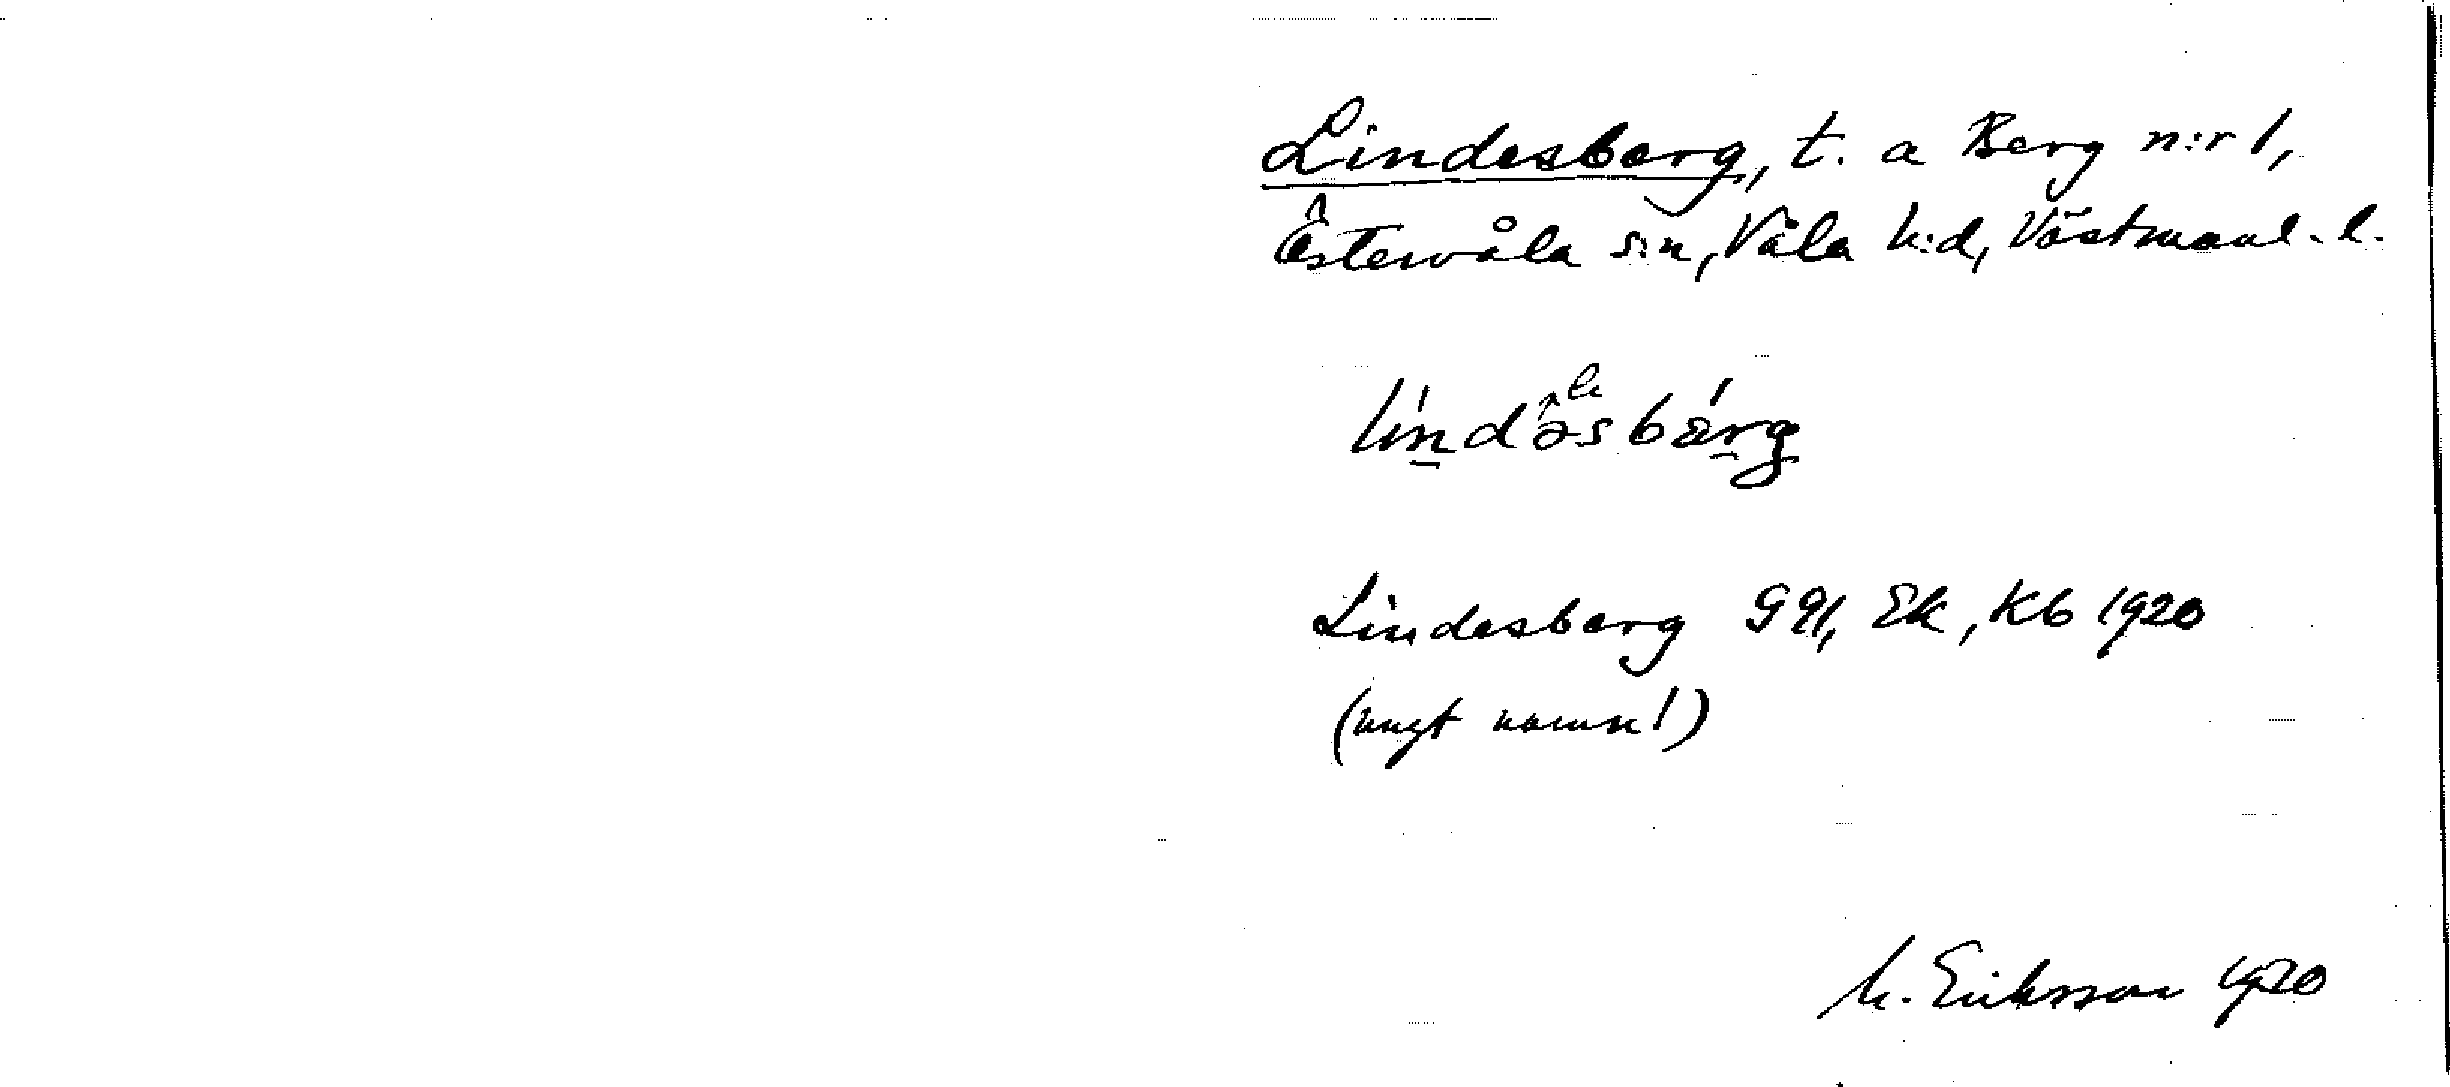 Lindesberg, t. a Berg n:r 1,
Östervåla s:n, Våla h:d, Västmanl. l.
Lindesberg GM, Ek, Kb 1920
(nygt namn!)
M. Eriksson 1920